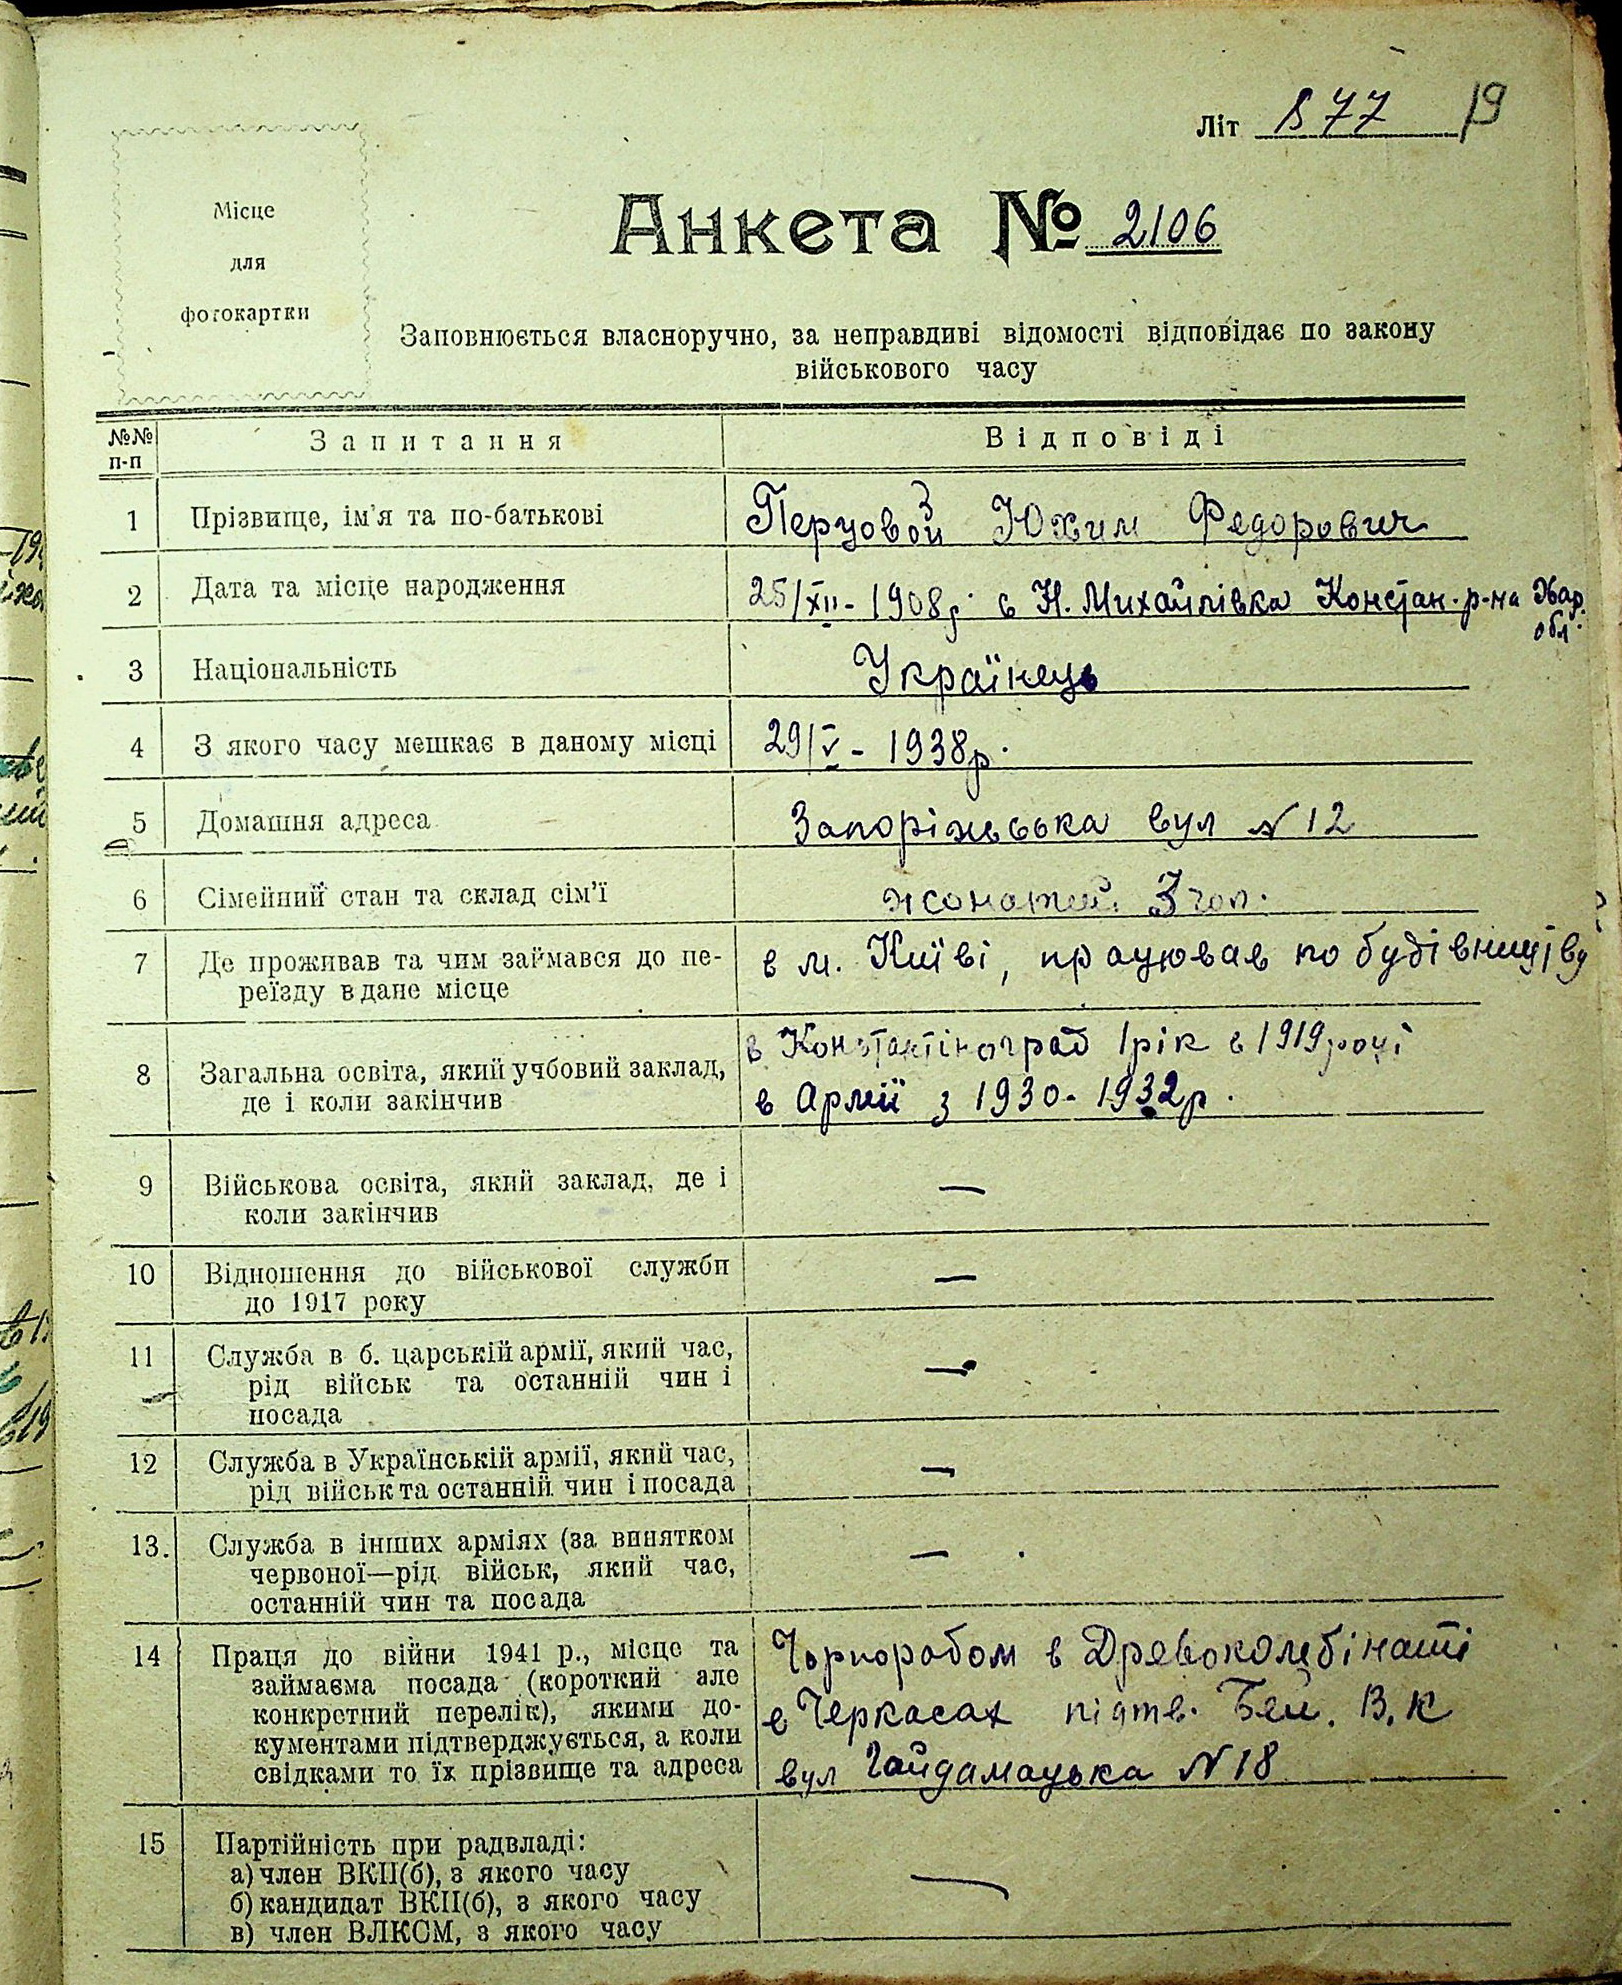 Літ 877 19
Місце
для
фотокартки
Анкета № 2106
Заповнюється власноручно, за неправдиві відомості відповідає по закону
військового часу
№№ п-п Запитання Відповіді
1 Прізвище, ім'я та по-батькові Перцовой Юхим Федорович
2 Дата та місце народження 25/XII - 1908р. с Н. Михайлівка Констан. р-на Хар.
обл.
3 Національність Українець
4 З якого часу мешкає в даному місці 29/V - 1938р.
5 Домашня адреса Запоріжська вул N 12
6 Сімейний стан та склад сім'ї жонатий. 3 чол.
7 Де проживав та чим займався до пе-
реїзду в дане місце в м. Київі, працював по будівництву
8 Загальна освіта, який учбовий заклад, в Константіноград 1 рік в 1919 році
де і коли закінчив в Армії з 1930 - 1932р.
9 Військова освіта, який заклад, де і —
коли закінчив
10 Відношення до військової служби —
до 1917 року
11 Служба в б. царській армії, який час, —
рід військ та останній чин і
посада
12 Служба в Українській армії, який час, —
рід військ та останній чин і посада
13. Служба в інших арміях (за винятком —
червоної—рід військ, який час,
останній чин та посада
14 Праця до війни 1941 р., місце та Чорноробом в Древокомбінаті
займаєма посада (короткий але
конкретний перелік), якими до- в Черкасах підтв. Бей. В. К
кументами підтверджується, а коли
свідками то їх прізвище та адреса вул Гайдамацька N 18
15 Партійність при радвладі: —
а) член ВКП(б), з якого часу
б) кандидат ВКП(б), з якого часу
в) член ВЛКСМ, з якого часу